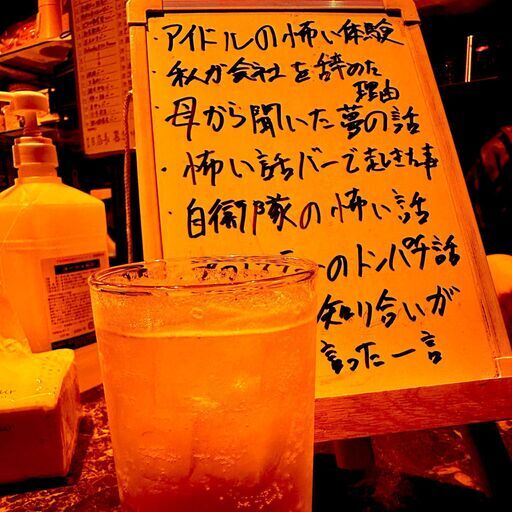 ・アイドルの怖い体験
・私が会社を辞めた
理由
・母から聞いた夢の話
・怖い話バーで起きた事
・自衛隊の怖い話
のトンパチ話
知り合いが
言った一言